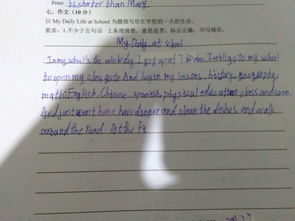 Peter is shorter than Mary.
七、作文(10分)
以 My Daily Life at School 为题描写你在学校的一天的生活。
要求:1.不少于五句话 2.条理清楚,意思连贯,标点正确,书写规范。
My Daily at school
In my school's the whole day. I get up at I will go to my school
to open my class And began my lessons, history, geography
math, English, Chinese, spanish, physical education class and soon.
And just went home have danper and clean the dishes and walk
around the road. At the